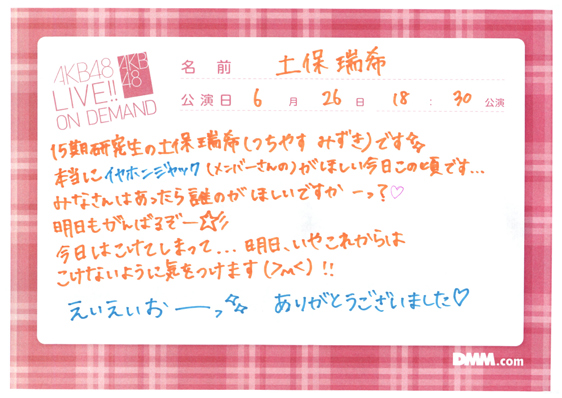 AKB48
LIVE!!
ON DEMAND
AKB
48
名 前 土保 瑞希
公演日 6 月 26 日 18 : 30 公演
15期研究生の土保瑞希(つちやす みずき)です☆☆
本当にイヤホンジャック(メンバーさんの)がほしい今日この頃です...
みなさんはあったら誰のがほしいですかーっ?♡
明日もがんばるぞー☆彡
今日はこけてしまって...明日、いやこれからは
こけないように気をつけます(>_<)!!
えいえいおーーっ☆☆ ありがとうございました♡
DMM.com